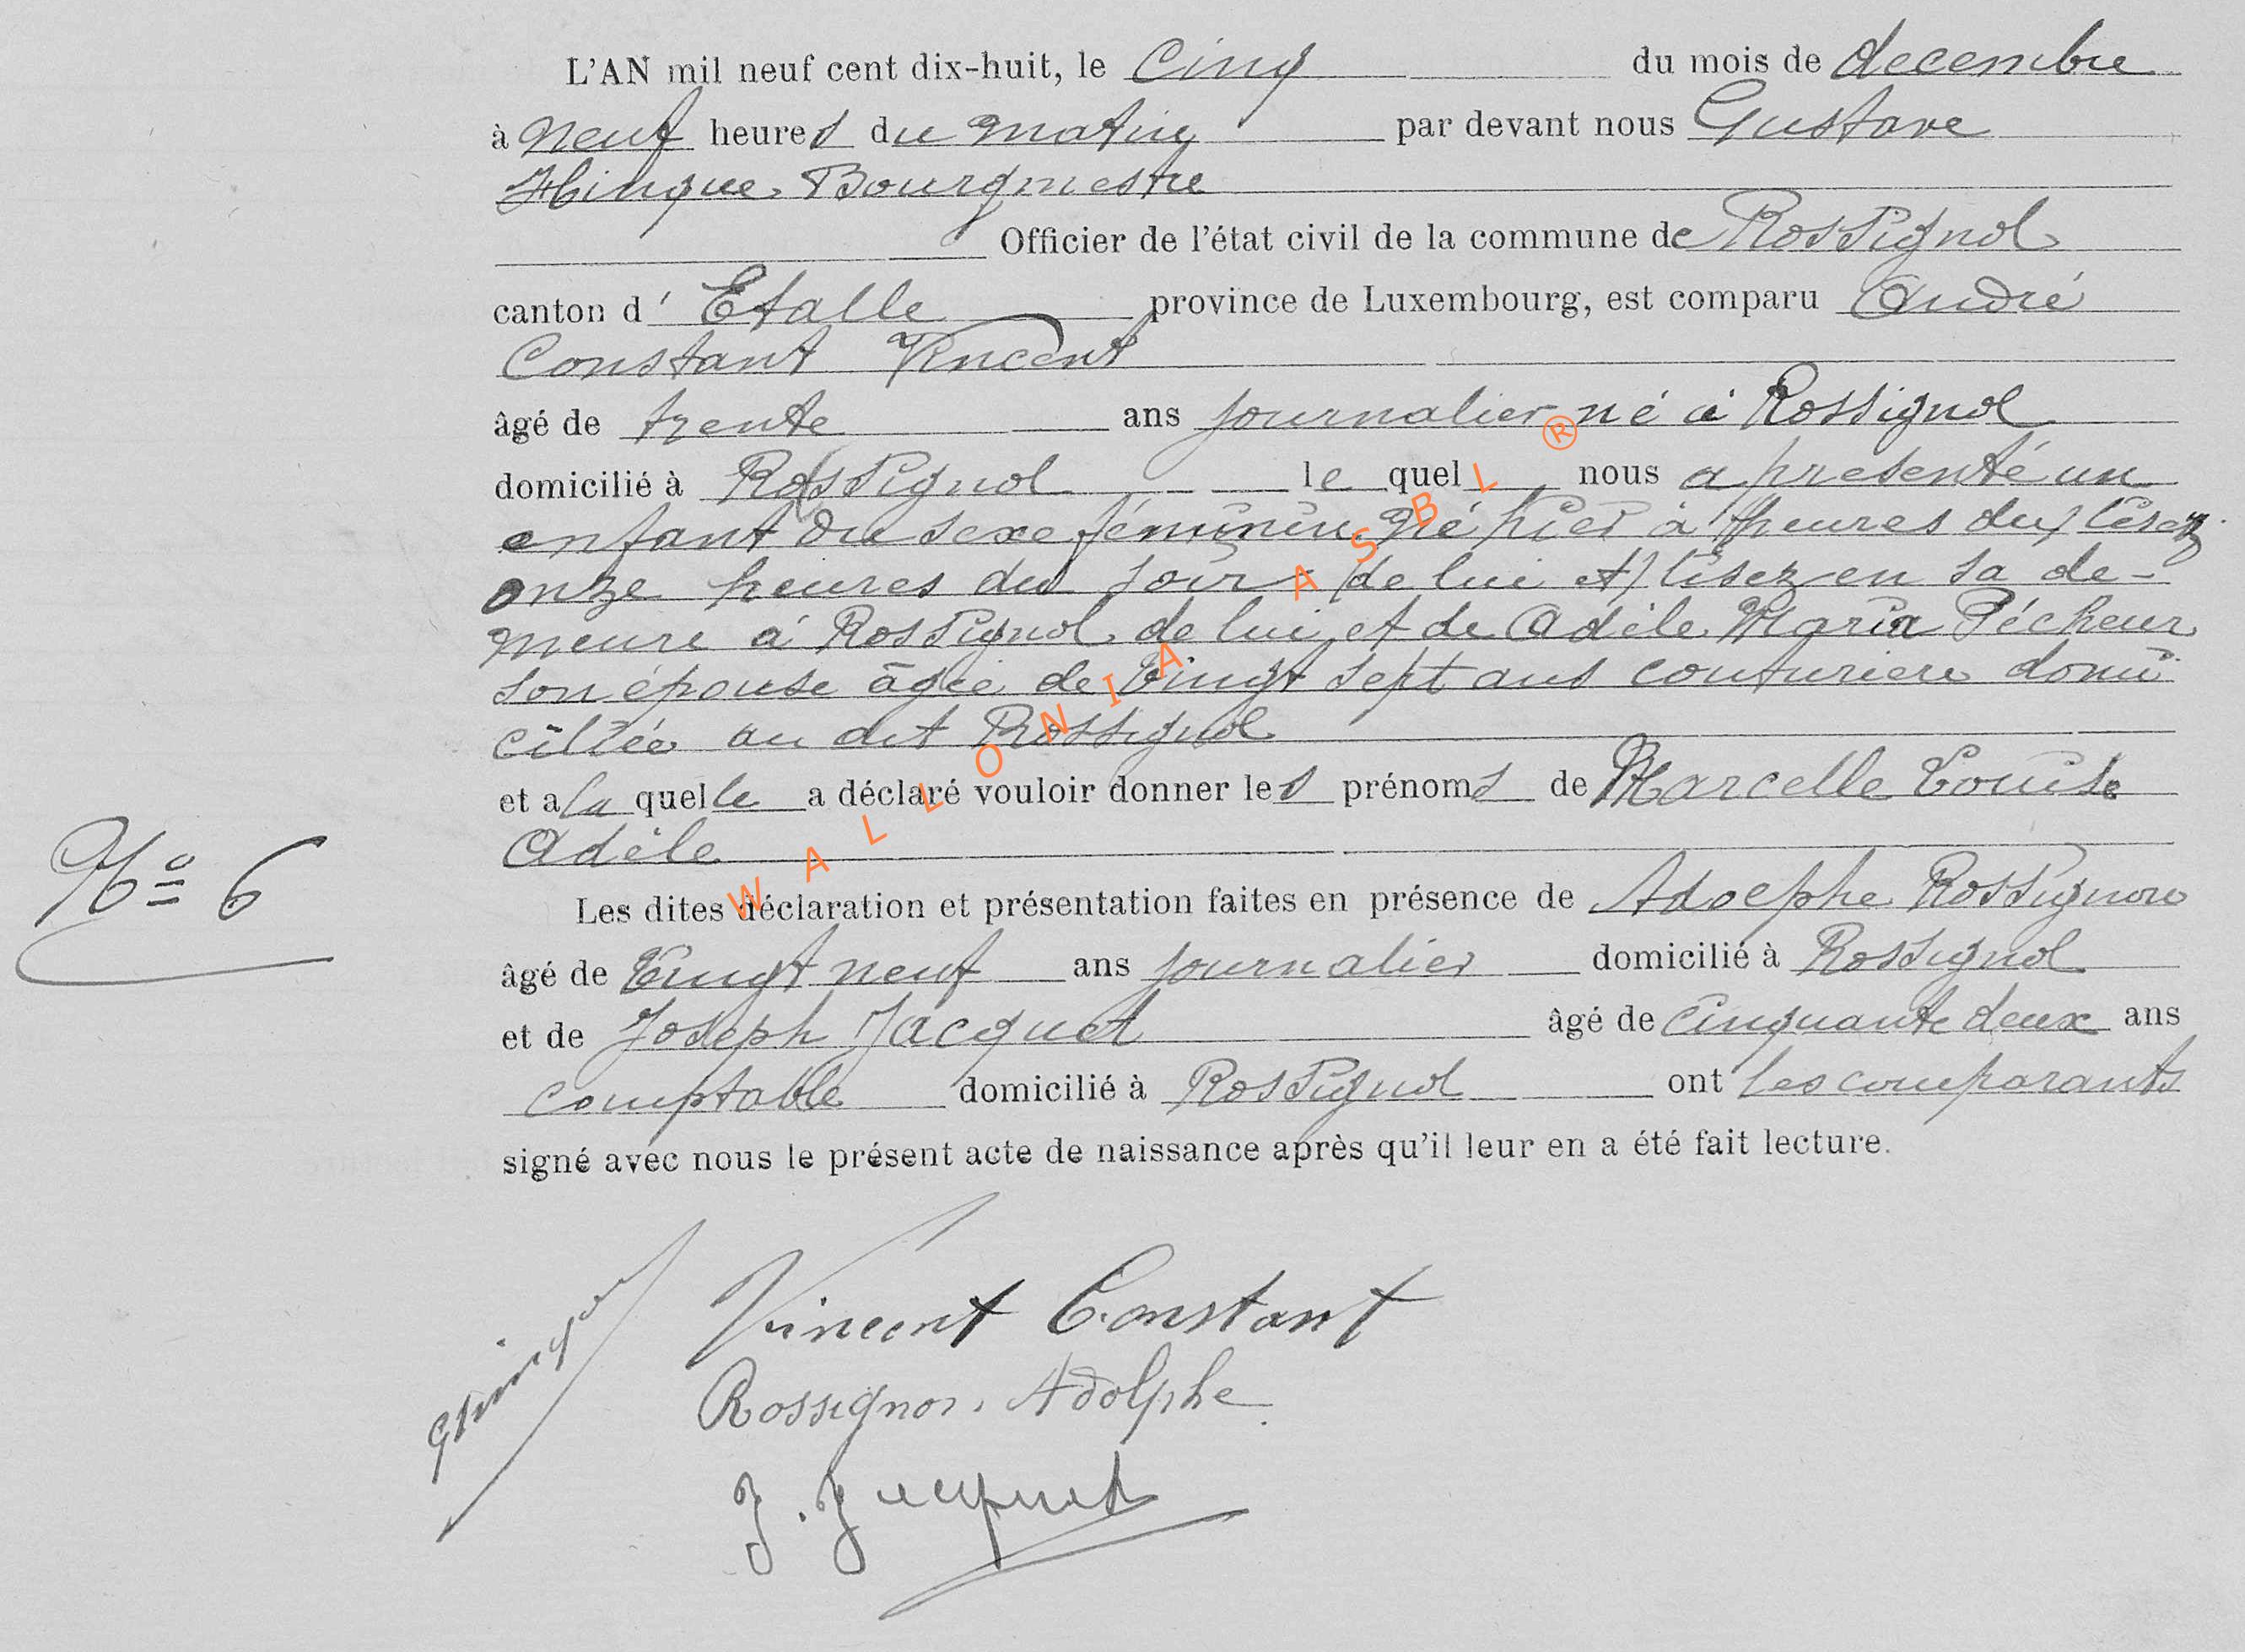 L'AN mil neuf cent dix-huit, le Cinq du mois de decembre
à neuf heures du matin par devant nous Gustave
Hinque Bourgmestre
Officier de l'état civil de la commune de Rossignol
canton d' Etalle province de Luxembourg, est comparu André
Constant Vincent
âgé de trente ans journalier né à Rossignol
domicilié à Rossignol le quel nous a presenté un
enfant du sexe féminin né hier à (heures du) lisez
onze heures du soir (de lui et) lisez en sa de-
meure à Rossignol de lui et de Adèle Maria Pécheur
son épouse âgée de vingt sept ans couturiere domi
ciliée au dit Rossignol
et a la quelle a déclaré vouloir donner les prénoms de Marcelle Louise
Adèle
Nº 6
Les dites déclaration et présentation faites en présence de Adolphe Rossignon
âgé de vingt neuf ans journalier domicilié à Rossignol
et de Joseph Jacquet âgé de cinquante deux ans
comptable domicilié à Rossignol ont les comparants
signé avec nous le présent acte de naissance après qu'il leur en a été fait lecture.
Vincent Constant
Rossignon Adolphe
J. Jacquet
WALLONIA ASBL ®